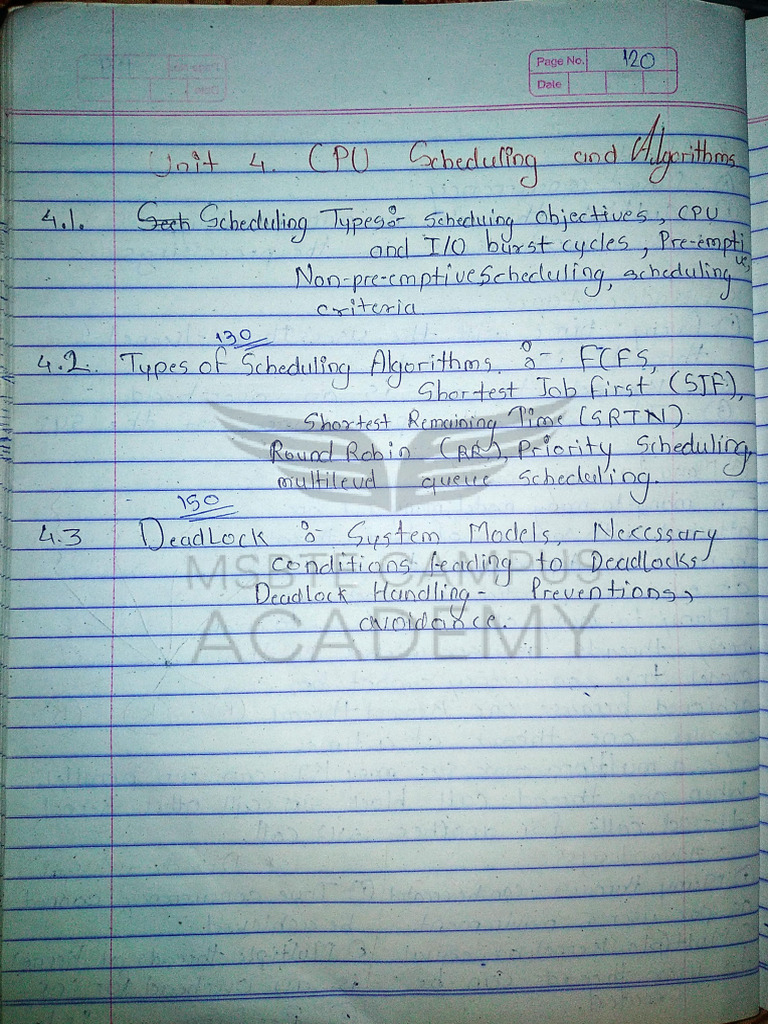 Page No. 120
Date
Unit 4. CPU Scheduling and Algorithms
4.1. Sech Scheduling Types:- Scheduing Objectives, CPU
and I/O burst cycles, Pre-emptive,
Non-pre-emptive Scheduling, scheduling
criteria
130
4.2. Types of Scheduling Algorithms. :- FCFS,
Shortest Job First (SJF),
Shortest Remaining Time (SRTN)
Round Robin (RR), Priority Scheduling,
multilevel queue scheduling.
150
4.3 DeadLock :- System Models, Necessary
conditions leading to Deadlocks
Deadlock Handling - Preventions,
avoidance.
MSBTE CAMPUS
ACADEMY